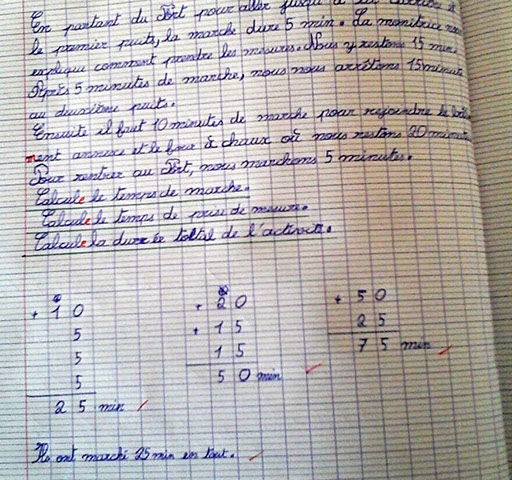 En partant du Fort pour aller jusqu'à
le premier puits, la marche dure 5 min. La monitrice nous
explique comment prendre les mesures. Nous y restons 15 min.
Après 5 minutes de marche, nous nous arrêtons 15 minutes
au deuxième puits.
Ensuite il faut 10 minutes de marche pour rejoindre le
ment annexe et le four à chaux où nous restons 20 minutes
Pour rentrer au Fort, nous marchons 5 minutes.
Calcule le temps de marche.
Calcule le temps de prise de mesure.
Calcule la durée total de l'activité.
+ 10
5
5
5
25 min
+ 20
+ 15
15
50 min
+ 50
25
75 min
Ils ont marché 25 min en tout.